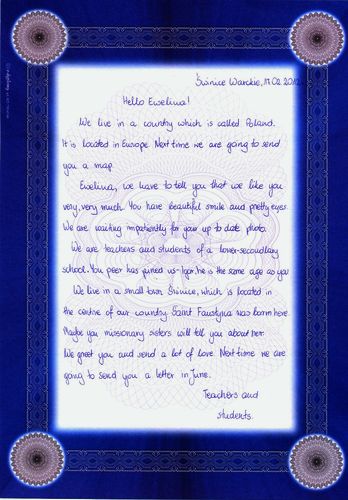 Świnice Warckie, 17.02.2012
Hello Ewelina!
We live in a country which is called Poland.
It is located in Europe. Next time we are going to send
you a map.
Ewelina, we have to tell you that we like you
very, very much. You have beautiful smile and pretty eyes.
We are waiting impatiently for your up to date photo.
We are teachers and students of a lower-secondary
school. You peer has joined us-Igor, he is the same age as you
We live in a small town Świnice, which is located in
the centre of our country. Saint Faustyna was born here.
Maybe you missionary sisters will tell you about her.
We greet you and send a lot of love. Next time we are
going to send you a letter in June.
Teachers and
students.